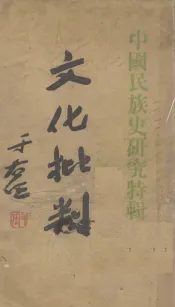 中國民族史研究特輯
文化批判
于右任